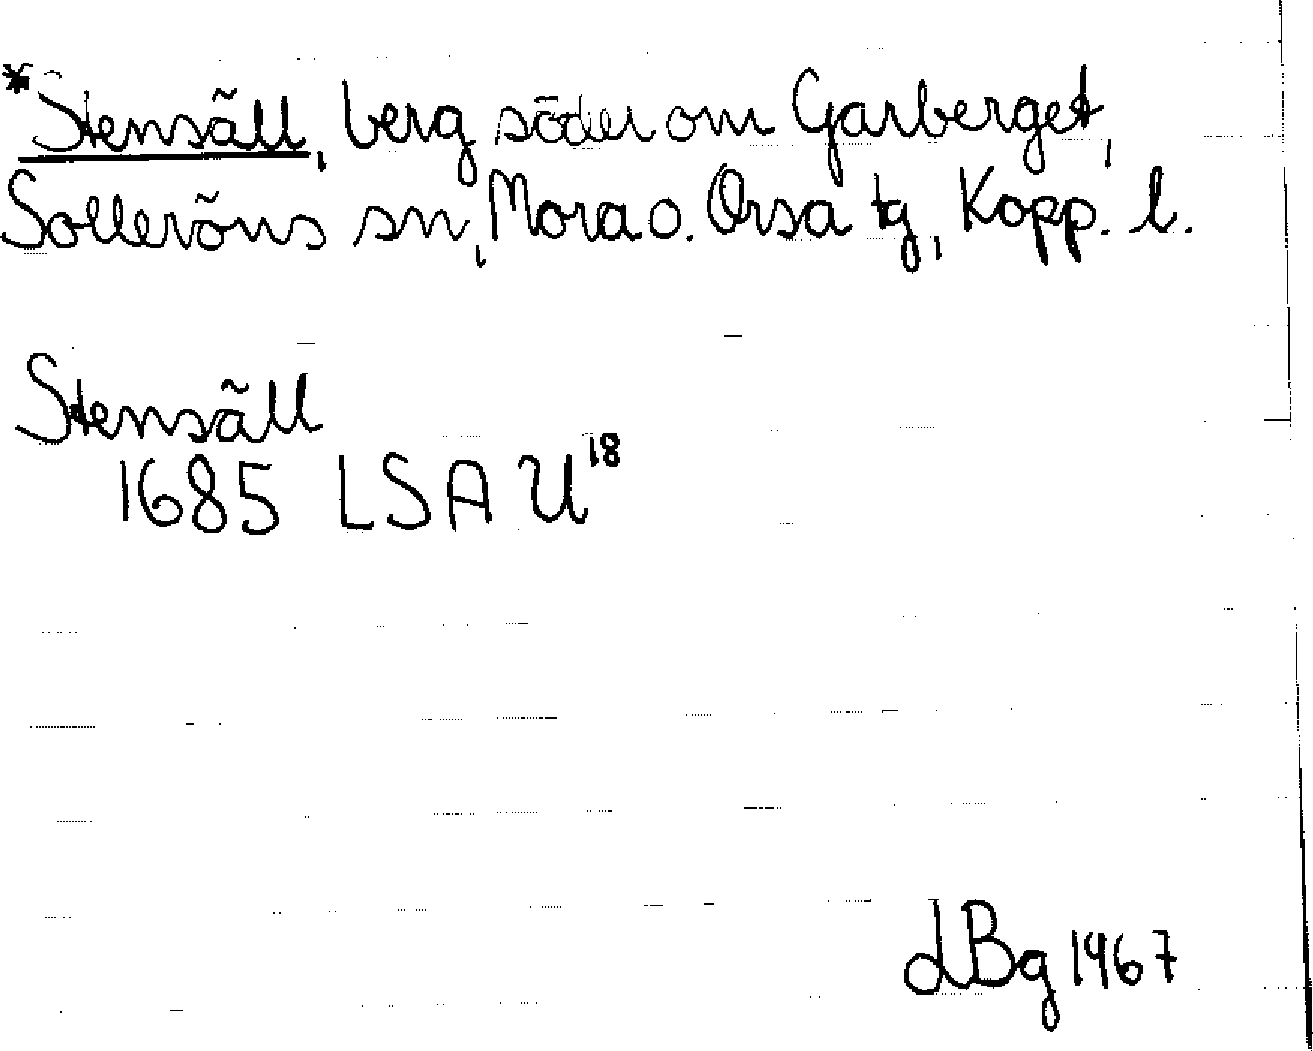 *Stensäll, berg söder om Garberget,
Solleröns sn, Mora o. Orsa tg, Kopp. l.
Stensäll
1685 LSA U¹⁸
LBg 1967